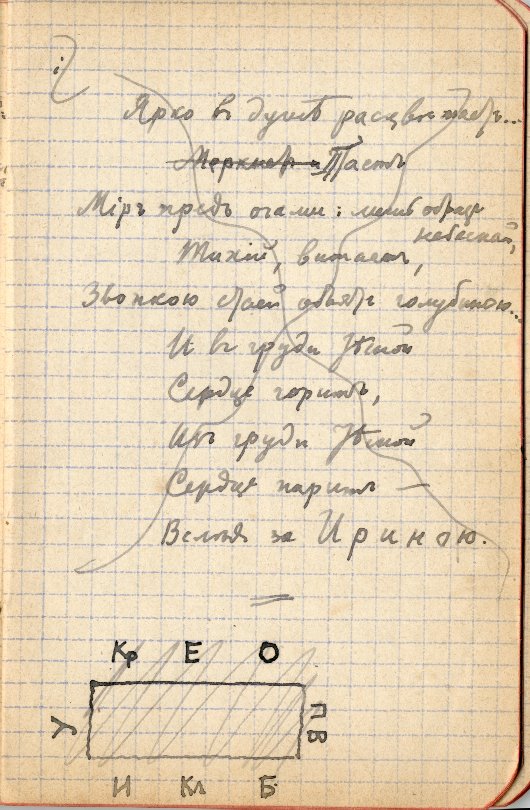 Ярко въ душѣ расцвѣтаетъ...
Меркнетъ и Таетъ
Міръ предъ очами: лишь образъ
небесной,
Тихій, витаетъ,
Звонкою стаей объятъ голубиною...
И въ груди тѣсной
Сердце горитъ,
Изъ груди тѣсной
Сердце паритъ —
Вслѣдъ за Ириною.
Кр Е О
У
ПВ
И Кл Б